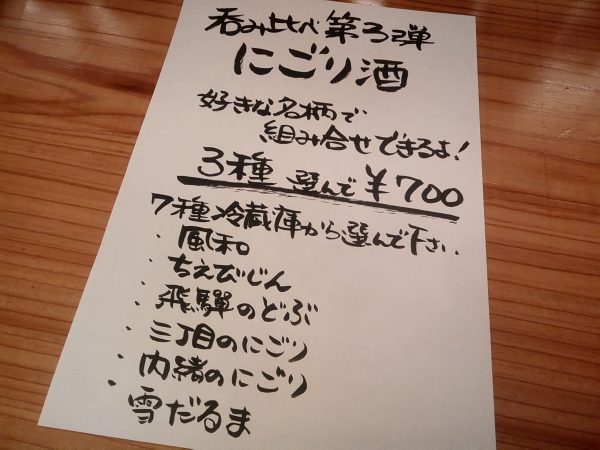 呑み比べ第3弾
にごり酒
好きな名柄で
組み合せできるよ!
3種 選んで ¥700
7種冷蔵庫から選んで下さい
・風和
・ちえびじん
・飛騨のどぶ
・三丁目のにごり
・内緒のにごり
・雪だるま